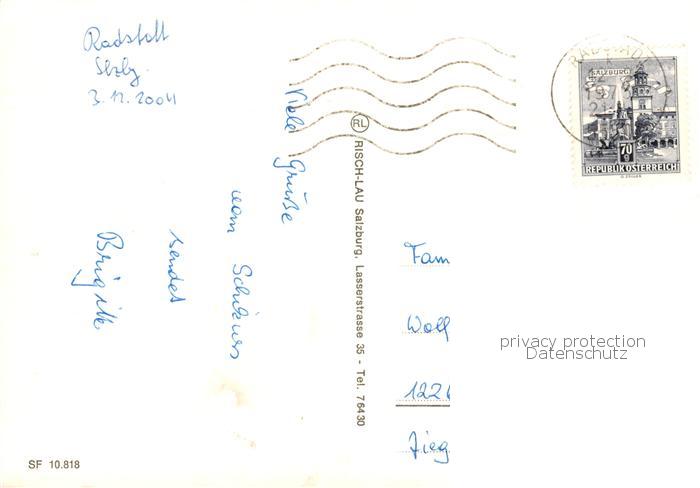 Radstatt
Slzbg.
3.12.2004
Viele Grüße
vom Schikurs
sendet
Brigitte
RL
RISCH-LAU Salzburg, Lasserstrasse 35 - Tel. 76430
SALZBURG
70 g
REPUBLIK ÖSTERREICH
Fam
Wolf
122
Zieg
privacy protection
Datenschutz
SF 10.818